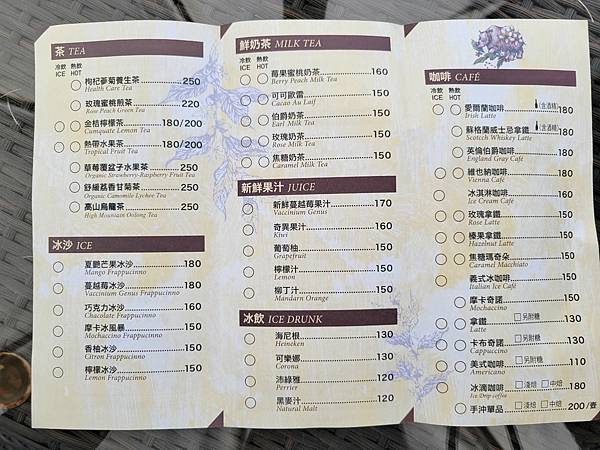 茶 TEA
冷飲 熱飲
ICE HOT
枸杞蔘菊養生茶 250
Health Care Tea
玫瑰蜜桃煎茶 220
Rose Peach Green Tea
金桔檸檬茶 180/200
Cumquate Lemon Tea
熱帶水果茶 180/200
Tropical Fruit Tea
草莓覆盆子水果茶 250
Organic Strawberry-Raspberry Fruit Tea
舒緩荔香甘菊茶 250
Organic Camomile Lychee Tea
高山烏龍茶 250
High Mountain Oolong Tea
冰沙 ICE
夏艷芒果冰沙 180
Mango Frappucinno
蔓越莓冰沙 180
Vaccinium Genus Frappucinno
巧克力冰沙 160
Chacolate Frappucinno
摩卡冰風暴 150
Mochaccino Frappucinno
香柚冰沙 150
Citron Frappucinno
檸檬冰沙 150
Lemon Frappucinno
鮮奶茶 MILK TEA
冷飲 熱飲
ICE HOT
莓果蜜桃奶茶 160
Berry Peach Milk Tea
可可歐雷 150
Cacao Au Laif
伯爵奶茶 150
Earl Milk Tea
玫瑰奶茶 150
Rose Milk Tea
焦糖奶茶 150
Caramel Milk Tea
新鮮果汁 JUICE
新鮮蔓越莓果汁 170
Vaccinium Genus
奇異果汁 160
Kiwi
葡萄柚 150
Grapefruit
檸檬汁 150
Lemon
柳丁汁 150
Mandarn Orange
冰飲 ICE DRUNK
海尼根 130
Heineken
可樂娜 130
Corona
沛綠雅 120
Perrier
黑麥汁 120
Natural Malt
咖啡 CAFÉ
冷飲 熱飲
ICE HOT
愛爾蘭咖啡 (含酒精) 180
Irish Latte
蘇格蘭威士忌拿鐵 (含酒精) 180
Scotcch Whiskey Latte
英倫伯爵咖啡 180
England Gray Café
維也納咖啡 180
Vienna Café
冰淇淋咖啡 160
Ice Cream Café
玫瑰拿鐵 150
Rose Latte
榛果拿鐵 150
Hazelnut Latte
焦糖瑪奇朵 150
Caramel Macchiato
義式冰咖啡 150
Italian Ice Café
摩卡奇諾 150
Mochaccino
拿鐵 □另附糖 130
Latte
卡布奇諾 □另附糖 130
Cappuccino
美式咖啡 □另附糖 110
Americano
冰滴咖啡 □淺焙 □中焙 180
Ice Drip coffee
手沖單品 □淺焙 □中焙 200/壺